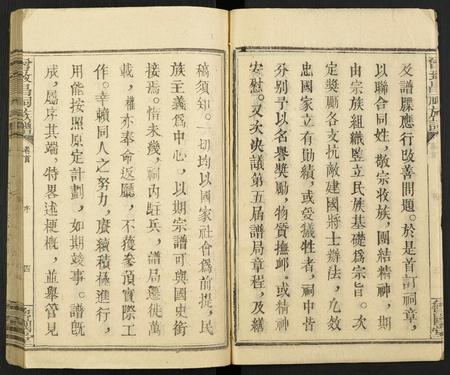 及譜牒應行改善問題。於是首訂祠章，
以聯合同姓，敬宗收族，團結精神，期
由宗族組織豎立民族基礎爲宗旨。次
定奬勵各支抗敵建國將士辦法，凡效
忠國家立有勛績，或受犧牲者，祠中皆
分别予以名譽奬勵，物質撫邺，或精神
安慰。又次决議第五屆譜局章程，及繕
稿須知。一切均以國家社會爲前提，民
族主義爲中心，以期宗譜可與國史銜
接焉。惜未幾，祠内駐兵，譜局遷徙萬
載，權亦奉命返廳，不獲參預實際工
作。幸賴同人之努力，賡續積極進行，
用能按照原定計劃，如期竣事。譜旣
成，屬序其端。特畧述梗概，並舉管見
序
四